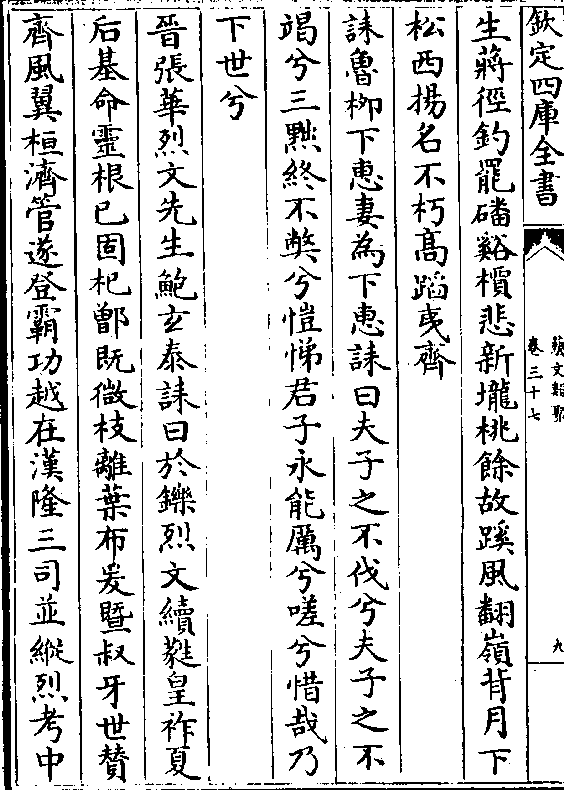 欽定四庫全書
藝文類聚
卷三十七
九
生蔣徑釣罷磻谿檟悲新壠桃餘故蹊風翻嶺背月下
松西揚名不朽髙蹈夷齊
誄魯栁下惠妻為下惠誄曰夫子之不伐兮夫子之不
竭兮三黜終不弊兮愷悌君子永能厲兮嗟兮惜哉乃
下世兮
晉張華烈文先生鮑玄泰誄曰於鑠烈文續蕤皇祚夏
后基命靈根已固杞鄫既微枝離葉布爰曁叔牙世賛
齊風翼桓濟管遂登霸功越在漢隆三司並縱烈考中